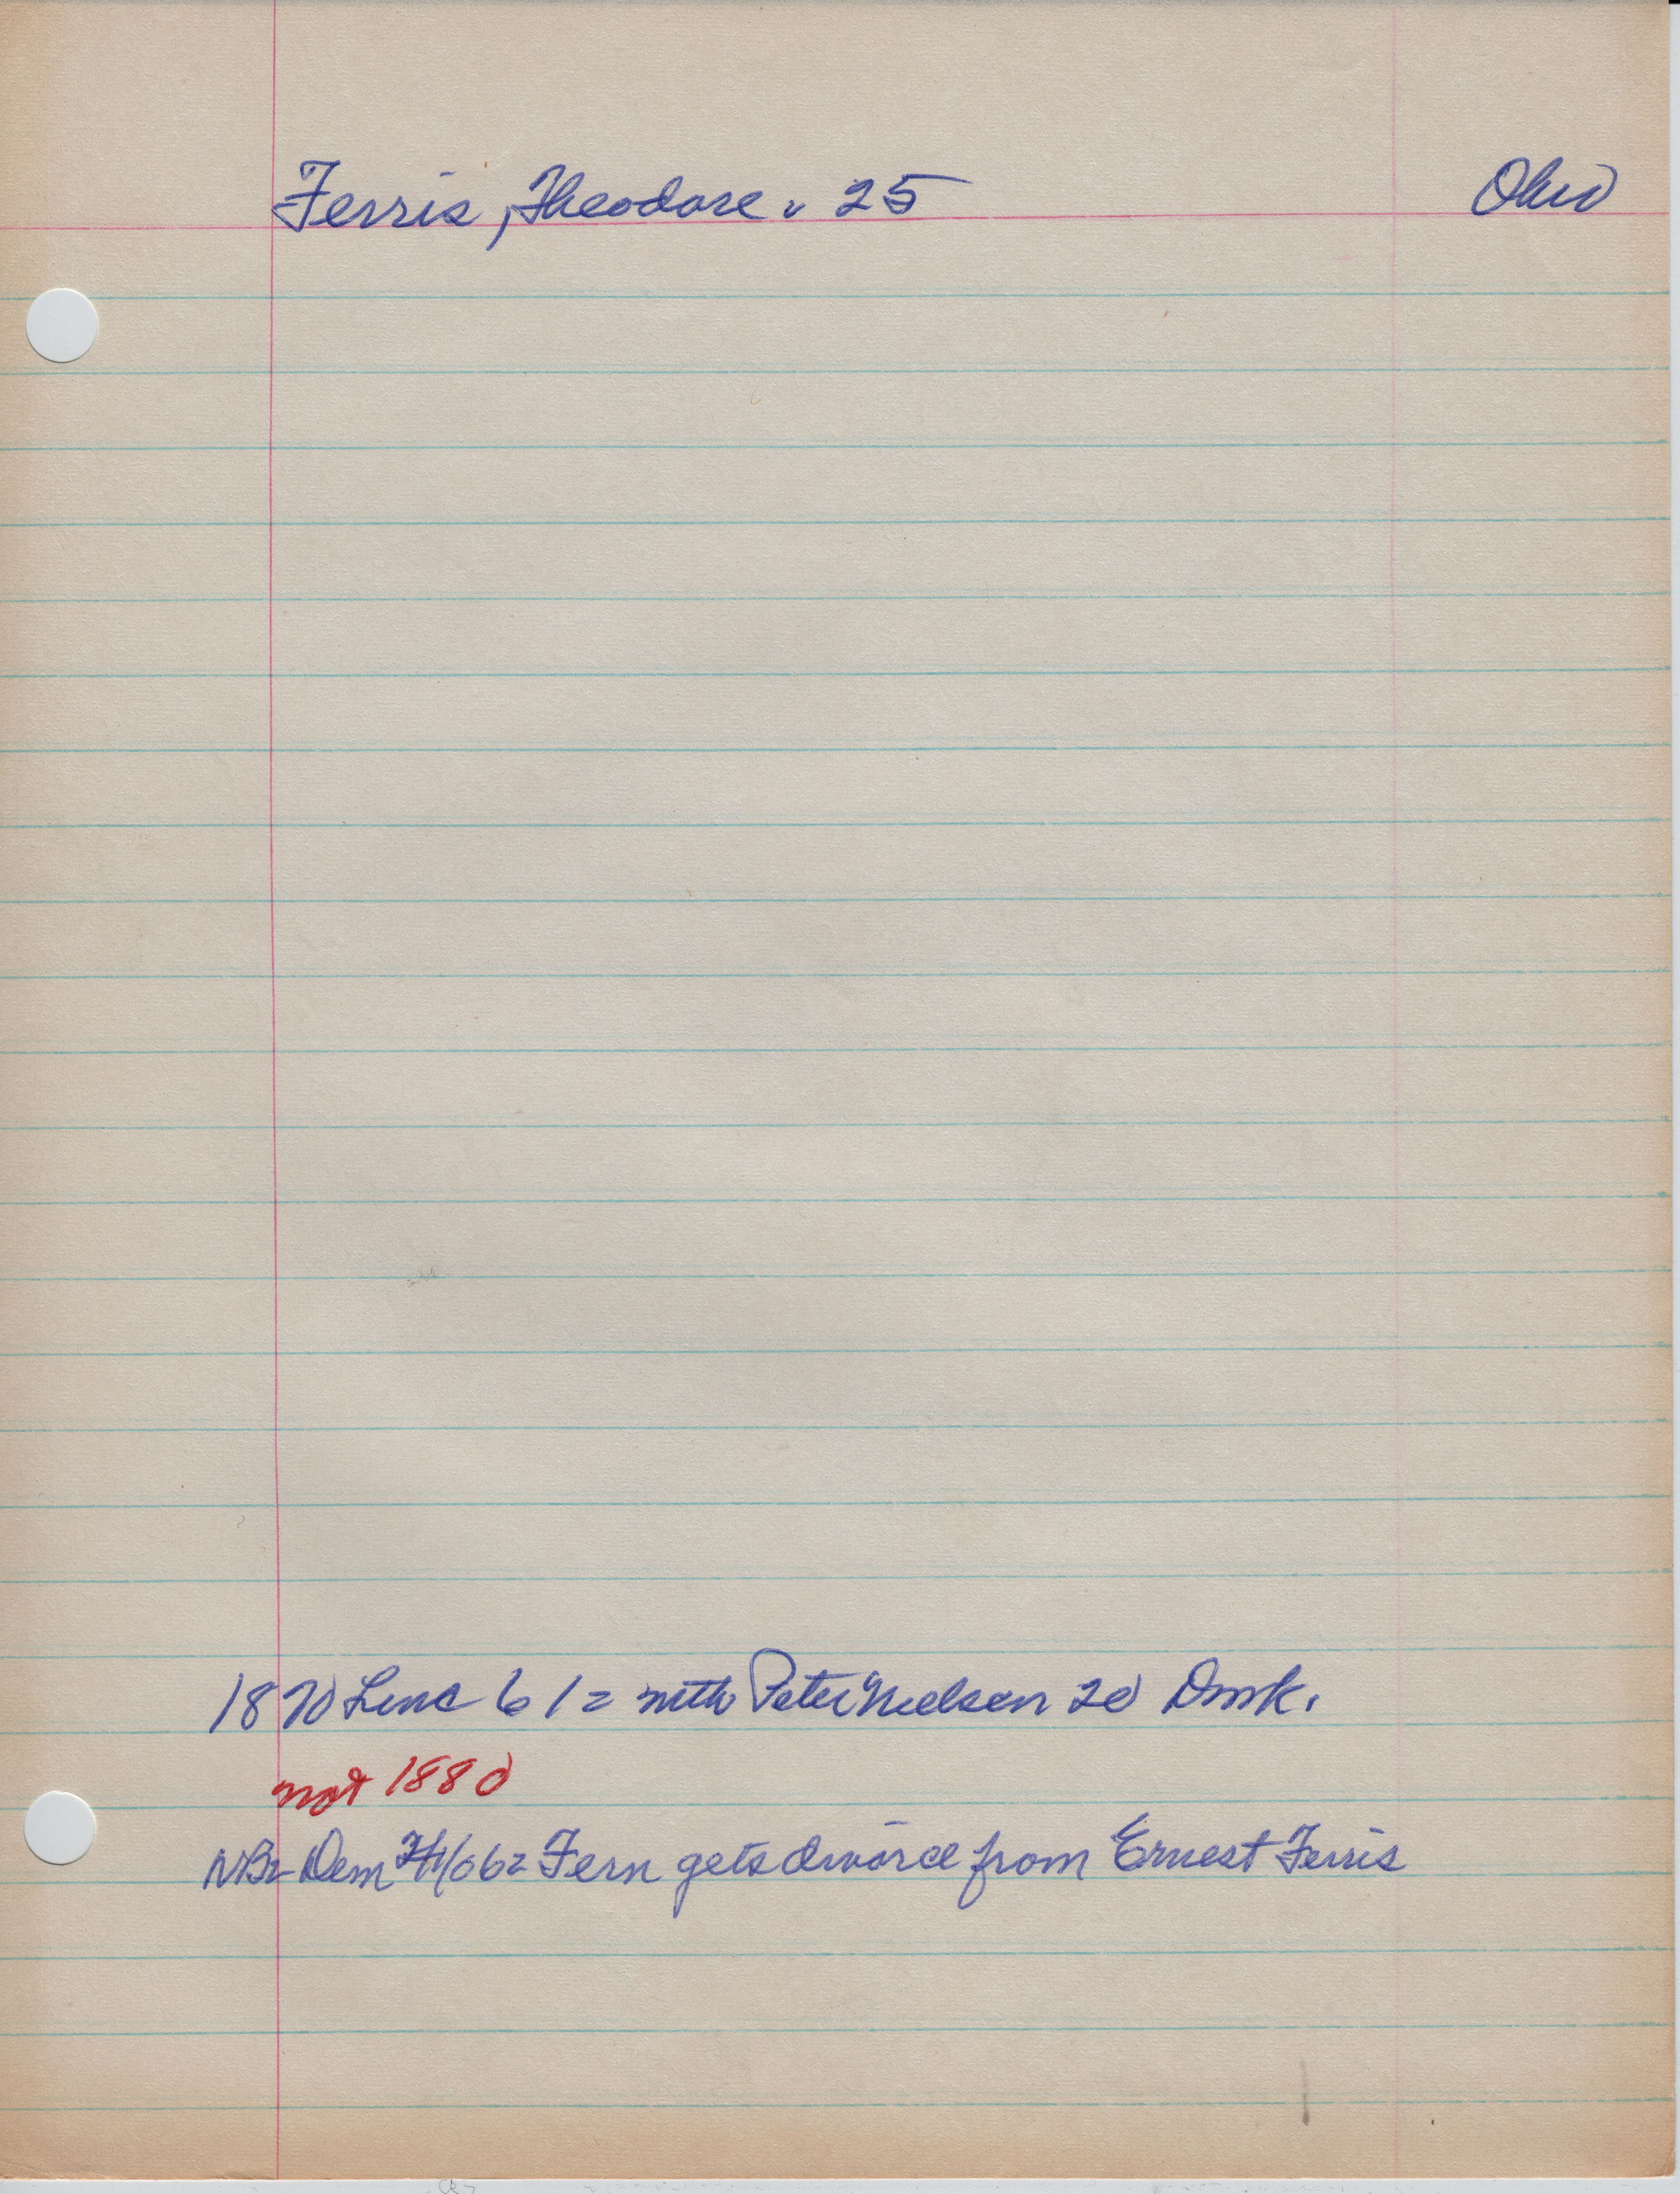 Ferris, Theodore. 25 Ohio
1870 Linc 61 = with Peter Nielsen 20 Dmk.
not 1880
NB= Dem 1062 Fern gets divorce from Ernest Ferris